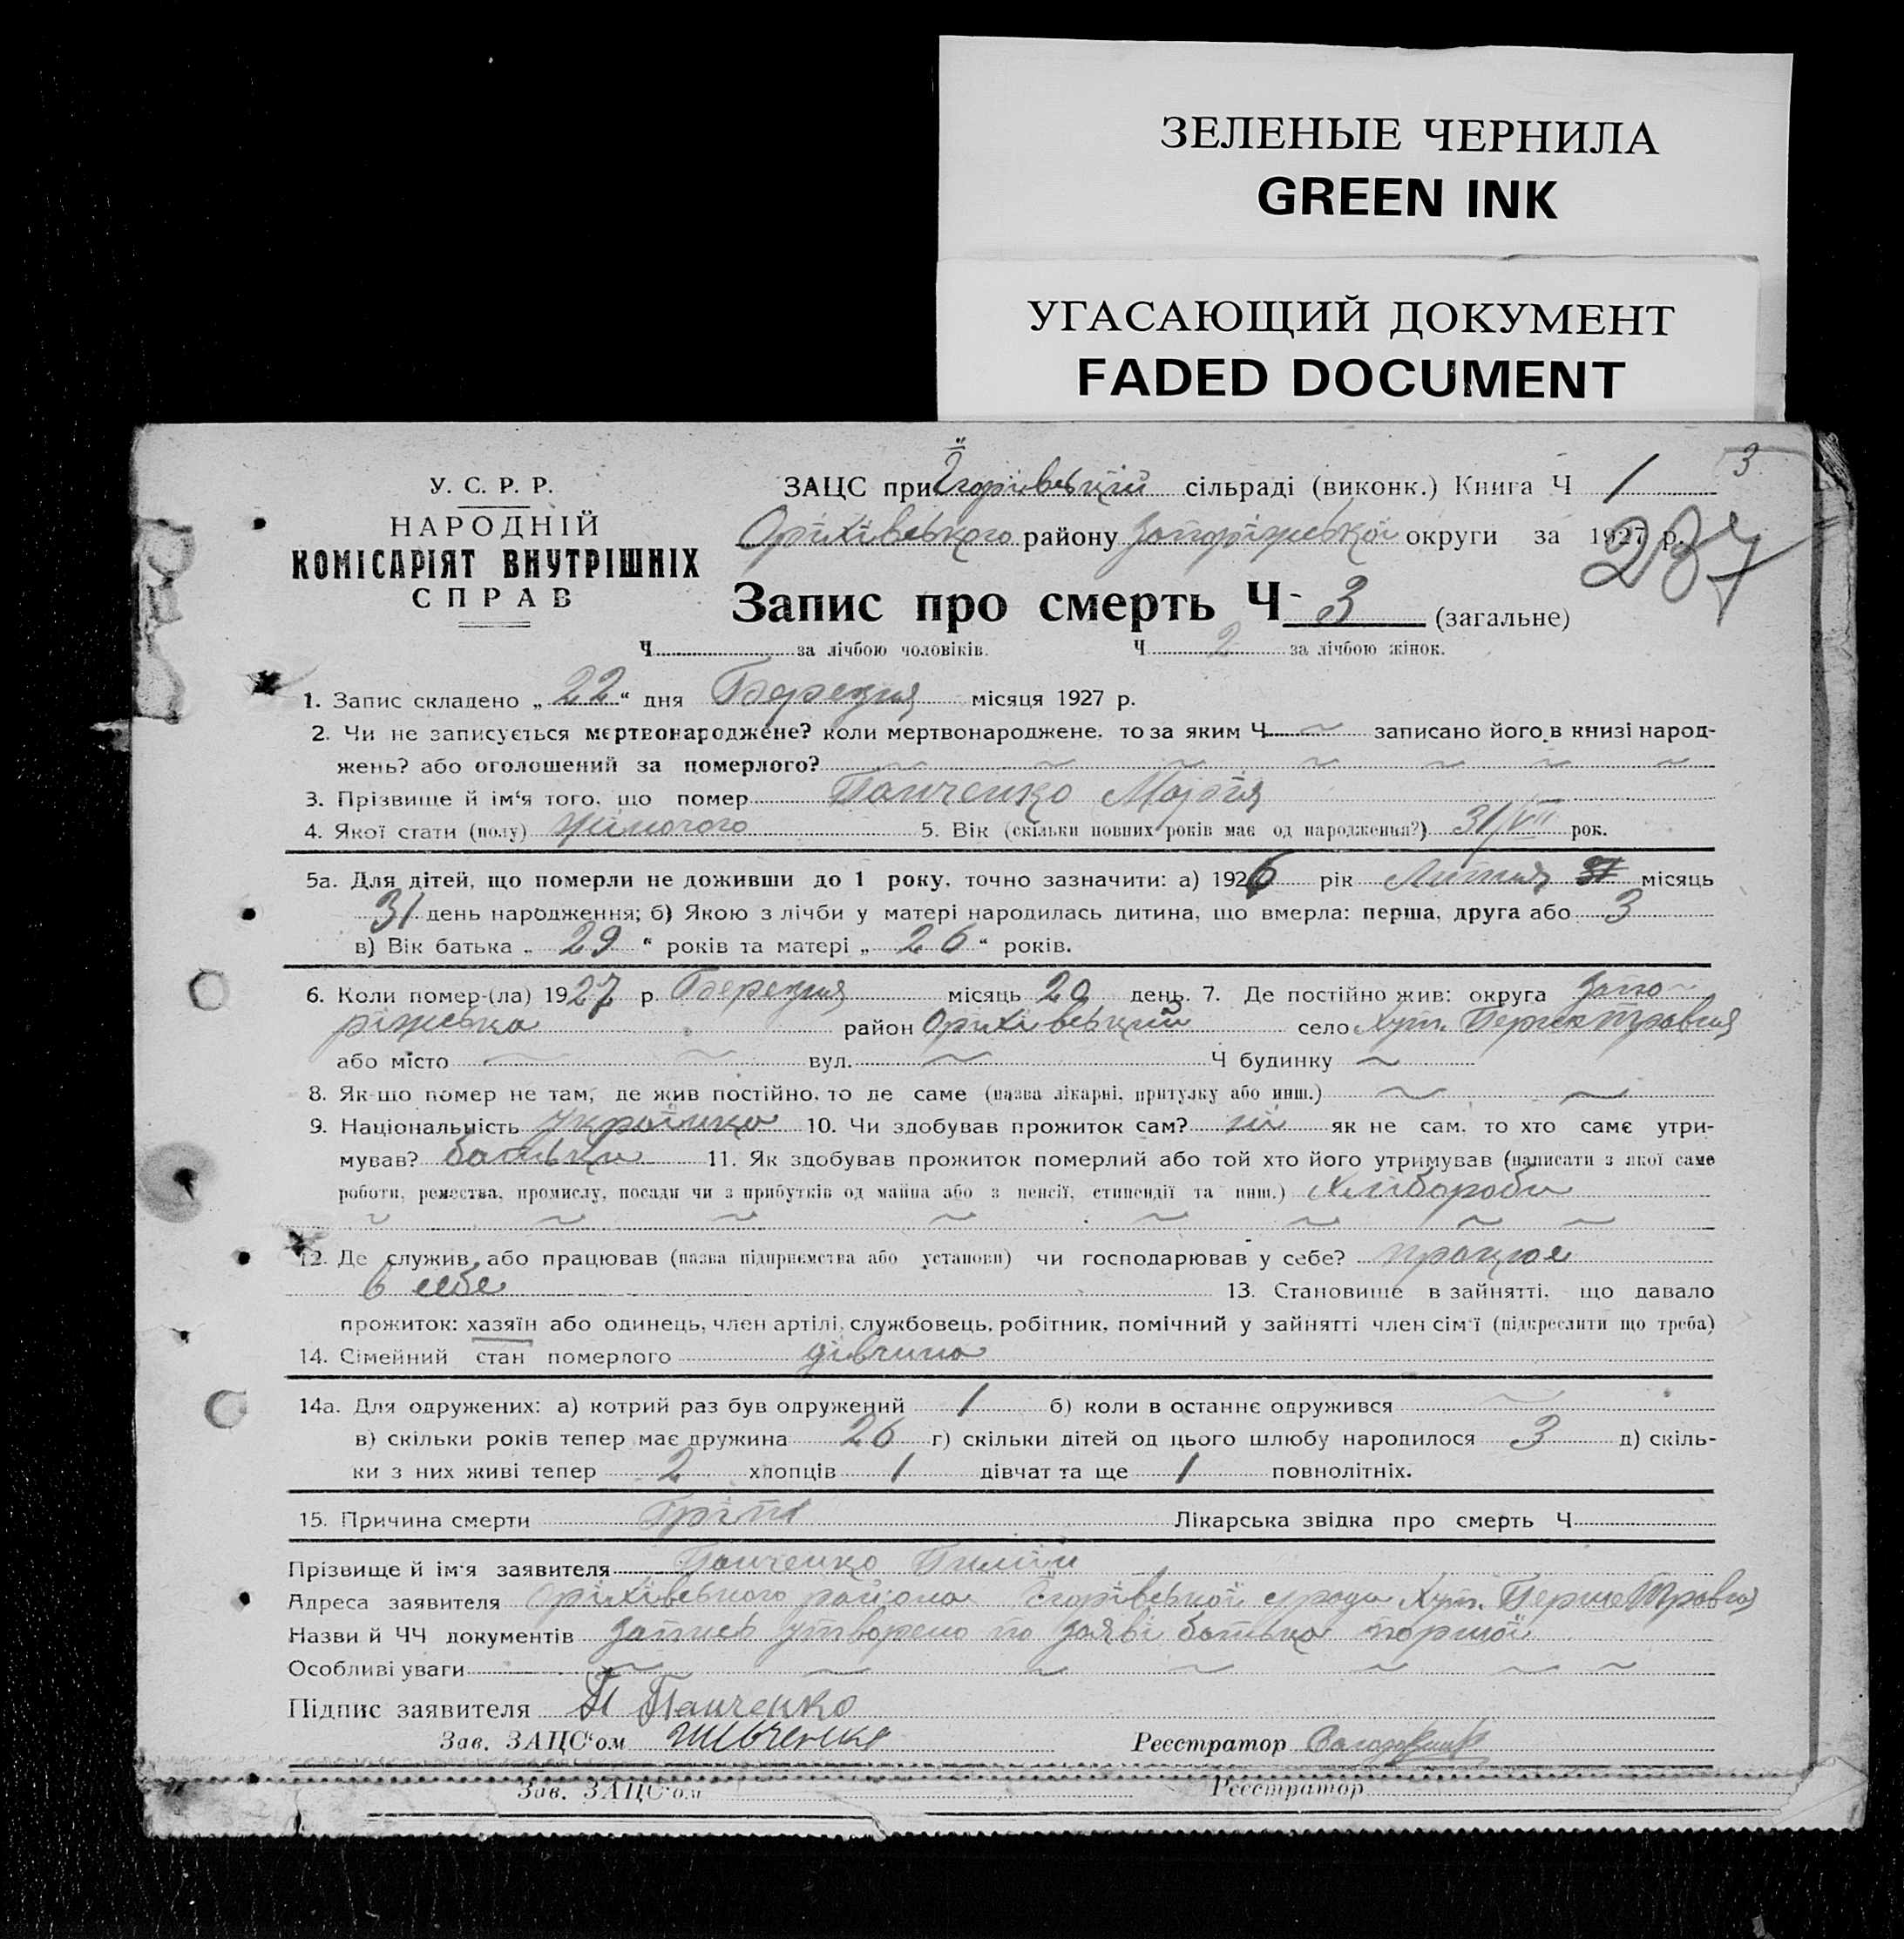 ЗЕЛЕНЫЕ ЧЕРНИЛА
GREEN INK
УГАСАЮЩИЙ ДОКУМЕНТ
FADED DOCUMENT
3
У. С. Р. Р.
НАРОДНІЙ
КОМІСАРІЯТ ВНУТРІШНІХ
СПРАВ
ЗАЦС при Їгорівській сільраді (виконк.) Книга Ч 1
Оріхівського району Запоріжської округи за 1927 р.
237
Запис про смерть Ч- 3 (загальне)
Ч за лічбою чоловіків. Ч 2 за лічбою жінок.
1. Запис складено „ 22 “ дня Березня місяця 1927 р.
2. Чи не записується мертвонароджене? коли мертвонароджене, то за яким Ч ~ записано його в книзі народ-
жень? або оголошений за померлого? ~ ~ ~ ~ ~ ~ ~
3. Прізвище й ім‘я того, що помер Панченко Марія
4. Якої стати (полу) жіночого 5. Вік (скільки повних років має од народження?) 31/VII рок.
5а. Для дітей, що померли не доживши до 1 року, точно зазначити: а) 1926 рік Липня місяць
31 день народження; б) Якою з лічби у матері народилась дитина, що вмерла: перша, друга або 3
в) Вік батька „ 29 “ років та матері „ 26 “ років.
6. Коли помер-(ла) 1927 р. Березня місяць 20 день. 7. Де постійно жив: округа Запо-
ріжська район Оріхівський село Хут. Перше Травня
або місто ~ ~ вул. ~ Ч будинку ~
8. Як-що помер не там, де жив постійно, то де саме (назва лікарні, притулку або инш.) ~ ~
9. Національність українка 10. Чи здобував прожиток сам? ні як не сам, то хто саме утри-
мував? батьки 11. Як здобував прожиток померлий або той хто його утримував (написати з якої саме
роботи, ремества, промислу, посади чи з прибутків од майна або з пенсії, стипендії та инш.) Хлібороби
~ ~ ~ ~ ~ ~ ~ ~
12. Де служив або працював (назва підприємства або установи) чи господарював у себе? працює
в себе 13. Становище в зайнятті, що давало
прожиток: хазяїн або одинець, член артілі, службовець, робітник, помічний у зайнятті член сім‘ї (підкреслити що треба)
14. Сімейний стан померлого дівчина
14а. Для одружених: а) котрий раз був одружений 1 б) коли в останнє одружився ~
в) скільки років тепер має дружина 26 г) скільки дітей од цього шлюбу народилося 3 д) скіль-
ки з них живі тепер 2 хлопців 1 дівчат та ще 1 повнолітніх.
15. Причина смерти Гріпп Лікарська звідка про смерть Ч
Прізвище й ім‘я заявителя Панченко Пилип
Адреса заявителя Оріхівського району Їгорівської с/ради Хут. Перше Травня
Назви й ЧЧ документів Запись утворено по заяві батька
Особливі уваги ~ ~ ~ ~ ~ ~ ~
Підпис заявителя П Панченко
Зав. ЗАЦС‘ом Реєстратор
Зав. ЗАЦС‘ом Реєстратор